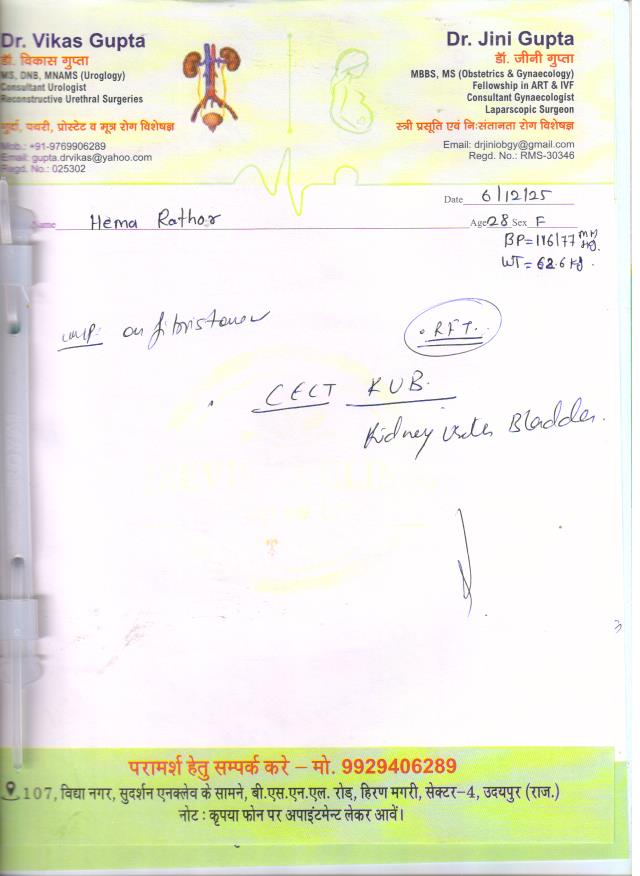 Dr. Vikas Gupta
डॉ. विकास गुप्ता
MS, DNB, MNAMS (Uroglogy)
Consultant Urologist
Reconstructive Urethral Surgeries
गुर्दा, पथरी, प्रोस्टेट व मूत्र रोग विशेषज्ञ
Mob.: +91-9769906289
Email: gupta.drvikas@yahoo.com
Regd. No.: 025302
Dr. Jini Gupta
डॉ. जीनी गुप्ता
MBBS, MS (Obstetrics & Gynaecology)
Fellowship in ART & IVF
Consultant Gynaecologist
Laparscopic Surgeon
स्त्री प्रसूति एवं निःसंतानता रोग विशेषज्ञ
Email: drjiniobgy@gmail.com
Regd. No.: RMS-30346
Date 6/12/25
Name Hema Rathor Age 28 Sex F
BP = 116/77 mm Hg.
WT = 62.6 kg.
RFT.
CECT KUB.
Kidney Bladder.
परामर्श हेतु सम्पर्क करे – मो. 9929406289
107, विद्या नगर, सुदर्शन एनक्लेव के सामने, बी.एस.एन.एल. रोड़, हिरण मगरी, सेक्टर-4, उदयपुर (राज.)
नोट : कृपया फोन पर अपाइंटमेन्ट लेकर आवें।